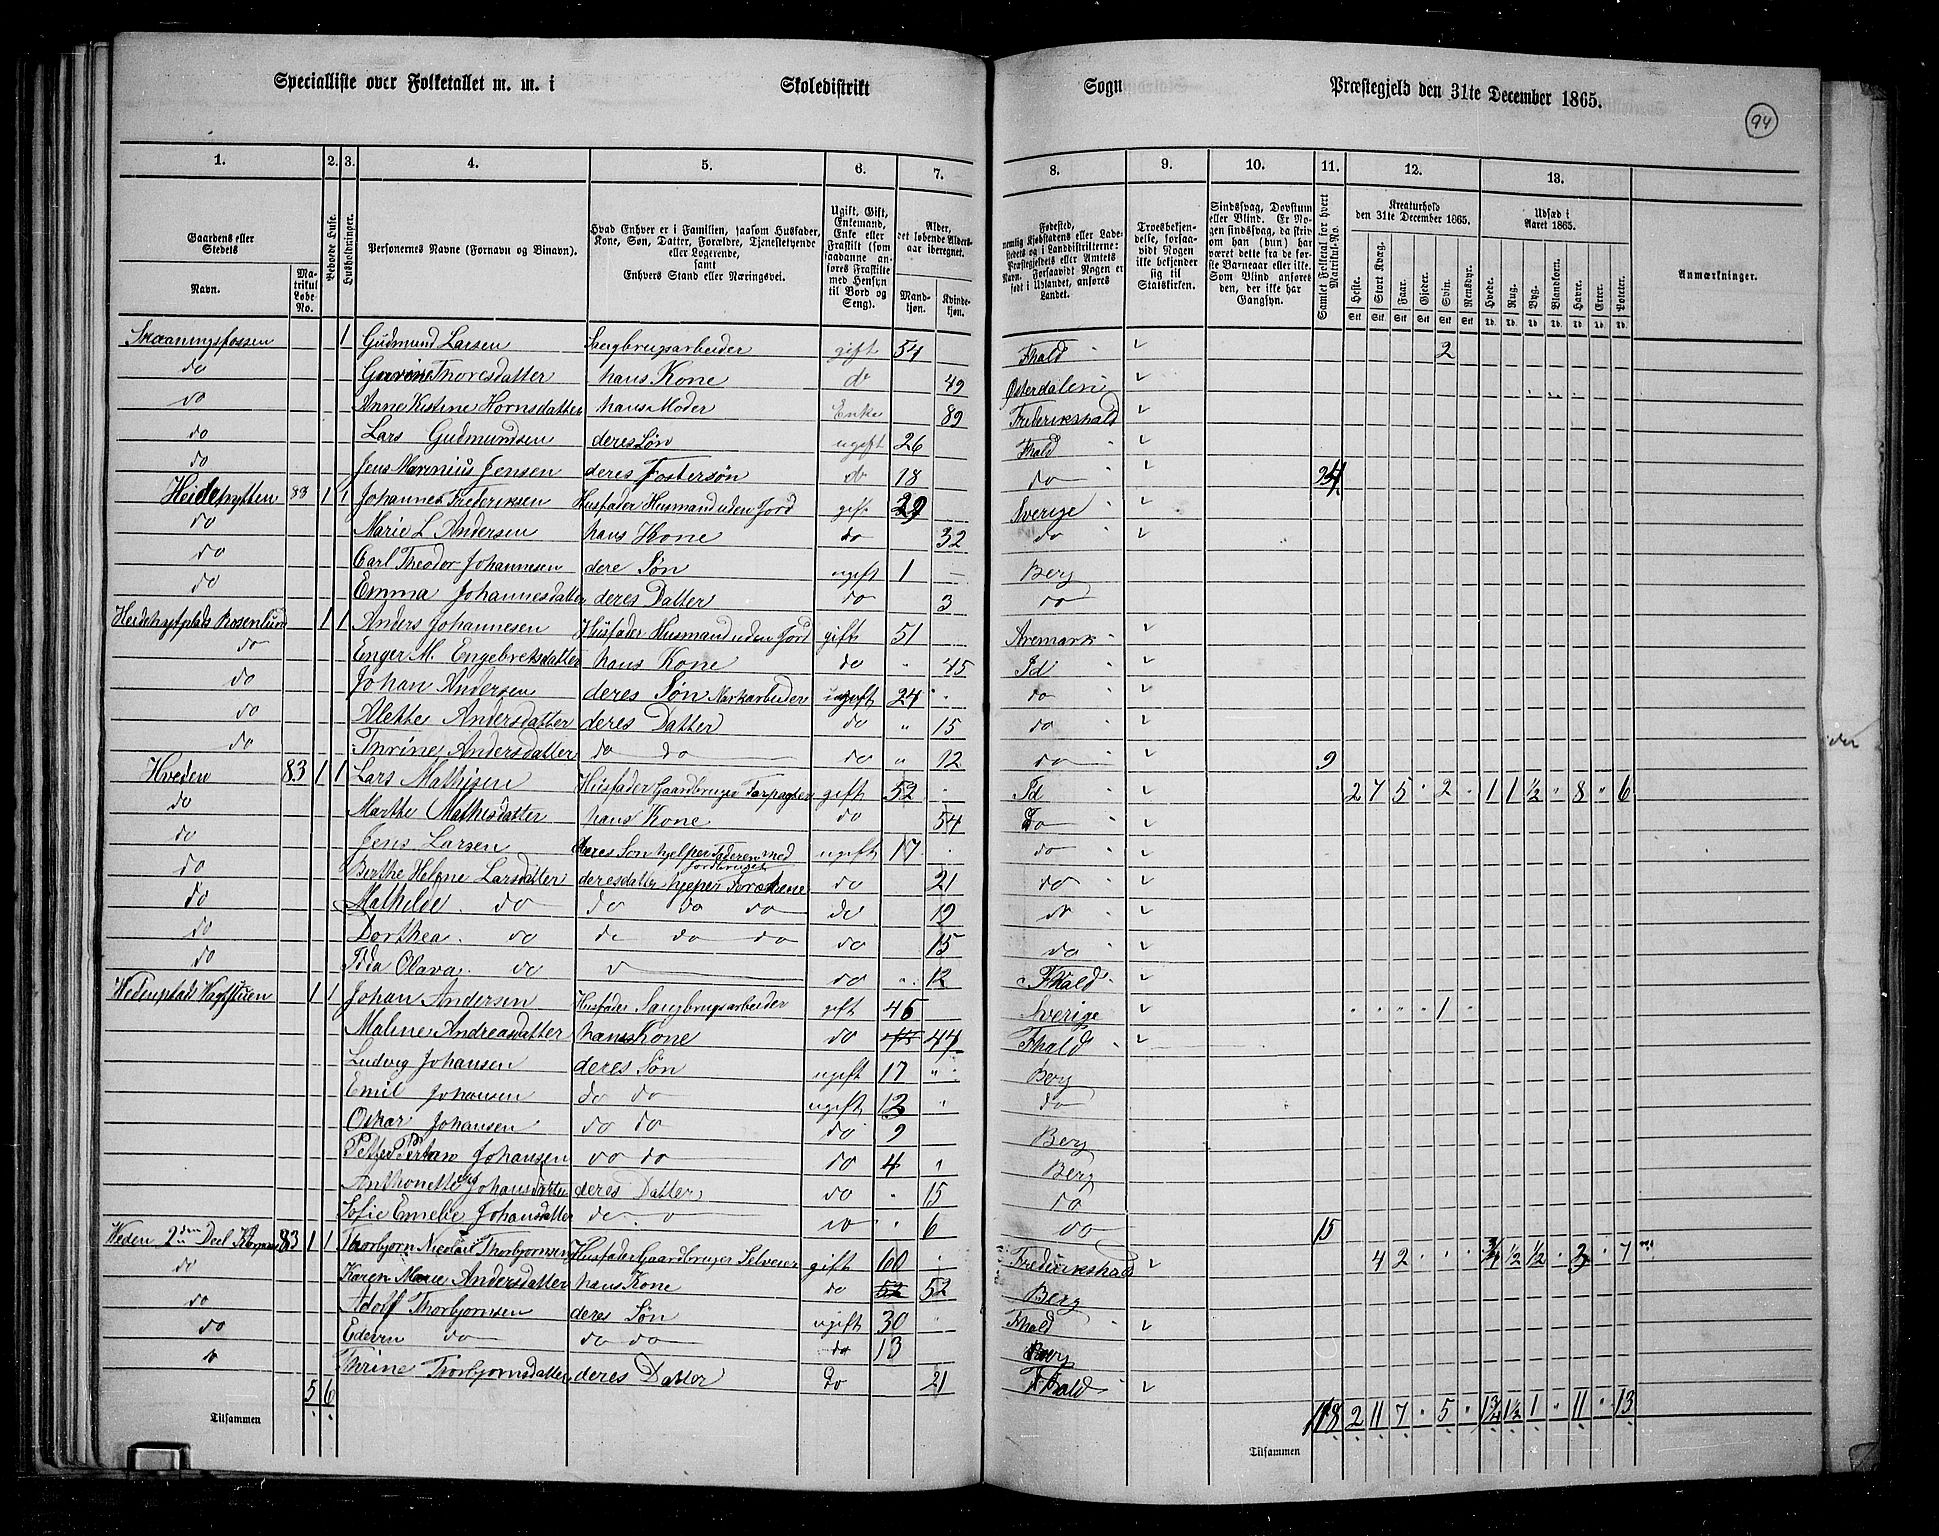 Specialliste over Folketallet m. m. i Skoledistrikt Sogn Præstegjeld den 31te December 1865.
94
1. 2. 3. 4. 5. 6. 7. 8. 9. 10. 11. 12. 13.
Gaardens eller Stedets
Navn.
Matrikul Løbe-No.
Beboede Huse.
Husholdninger.
Personernes Navne (Fornavn og Binavn).
Hvad Enhver er i Familien, saasom Husfader, Kone, Søn, Datter, Forældre, Tjenestetyende eller Logerende, samt Enhvers Stand eller Næringsvei.
Ugift, Gift, Enkemand, Enke eller Fraskilt (som saadanne anføres Fraskilte med Hensyn til Bord og Seng).
Alder, det løbende Aldersaar iberegnet.
Mandkjøn.
Kvindekjøn.
Fødested, nemlig Kjøbstadens eller Ladestedets og i Landdistrikterne: Præstegjeldets eller Amtets Navn. Forsaavidt Nogen er født i Udlandet, anføres Landet.
Troesbekjendelse, forsaavidt Nogen ikke bekjender sig til Statskirken.
Sindssvag, Døvstum eller Blind. Er Nogen sindssvag, da skriv om han (hun) har været det fra de første Barneaar eller ikke. Som Blind anføres den, der ikke har Gangsyn.
Samlet Folketal for hvert Matrikul-No.
Kreaturhold den 31te December 1865.
Heste. Stort Kvæg. Faar. Gjeder. Svin. Rensdyr.
Udsæd i Aaret 1865.
Hvede. Rug. Byg. Blandkorn. Havre. Erter. Poteter.
Anmærkninger.
Skaaningsfossen 1 Gudmund Larsen Saugbrugsarbeider gift 54 Fhald 2
do Thoresdatter hans Kone do 49 Østerdalen
do Anne Kistine Hornsdatter hans Moder Enke 89 Frederikshald
do Lars Gudmundsen deres Søn ugift 26 Fhald
do Jens Marinius Jensen deres Fostersøn do 18 do
Heidehytten 83 1 1 Johannes Frederiksen Husfader Husmand uden Jord gift 29 Sverige
do Marie L. Andersen hans Kone do 32 do
do Carl Theodor Johannesen dere Søn ugift 1 Berg
do Emma Johannesdatter deres Datter do 3 do
Heidehytplads Rosenlund 1 1 Anders Johannesen Husfader Husmand uden Jord gift 51 Aremark
do Enger M. Engebretsdatter hans Kone do 45 Id
do Johan Andersen deres Søn Markarbeider ugift 24 do
do Alette Andersdatter deres Datter do 15 do
do Thrine Andersdatter do do do 12 do 9
Hveden 83 1 1 Lars Mathisen Husfader Gaardbruger Forpagter gift 52 Id 2 7 5 2 1 1 ½ 8 6
do Marthe Mathisdatter hans Kone do 54 do
do Jens Larsen deres Søn hjelper Faderen med Jordbruget ugift 17 do
do Berthe Helene Larsdatter deres datter hjelper Forældrene do 21 do
do Mathilde do do do do do 19 do
do Dorthea do do do do do 15 do
do Ida Olava do do 12 Fhald
Wedenplads 1 1 Johan Andersen Husfader Saugbrugsarbeider gift 46 Sverige 1
Maline Andreasdatter hans Kone do 44 Fhald
Ludvig Johansen deres Søn ugift 17 Berg
Emil Johansen do do ugift 12 do
Oskar Johansen do do do 9 Berg
Johansen do do do 4 Berg
Anthonette Johansdatter deres Datter do 15 do
Sofie Emelie Johansdatter do do 6 do 15
Weden 2den Deel 83 1 1 Thorbjørn Nicolai Thorbjørnsen Husfader Gaardbruger Selveier gift 60 Frederikshald 4 2 ¾ ½ ½ 3 7
do Karen Marie Andersdatter hans Kone do 52 52 Berg
do Adolf Thorbjørnsen deres Søn ugift 30 Fhald
do Edevin do do do do 13 Berg
do Thrine Thorbjørnsdatter deres Datter do 21 Fhald
Tilsammen 5 6 Tilsammen 118 2 11 7 5 1¾ 1½ 1 11 13